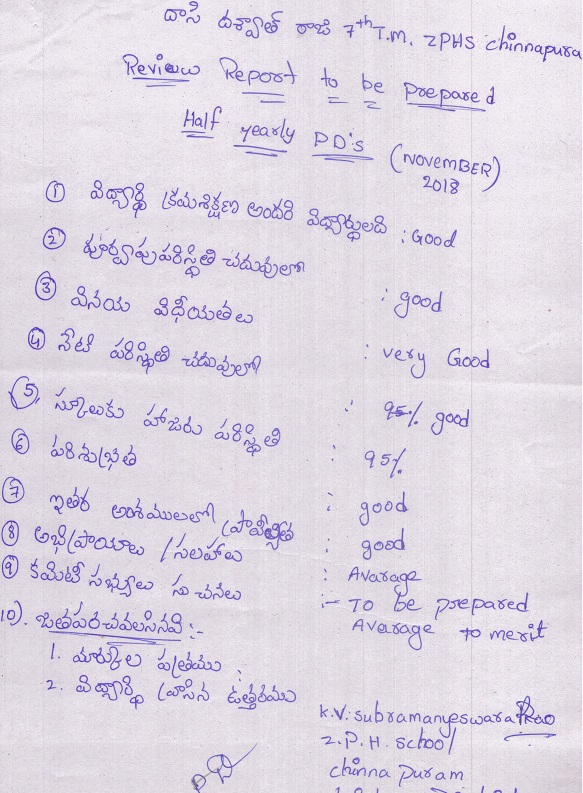 దాసి దశ్వాత్ రాజ 7th T.M. ZPHS chinnapura
Review Report to be prepared
Half yearly PD's (NOVEMBER)
2018
① విద్యార్థి క్రమశిక్షణ అందరి విద్యార్థులది : Good
② పూర్వాపుపరిస్థితి చదువులో : good
③ వినయ విధేయతలు : very Good
④ నేటి పరిస్థితి చదువులో : good
⑤ స్కూలుకు హాజరు పరిస్థితి : 95%
⑥ పరిశుభ్రత : good
⑦ ఇతర అంశములలో : good
⑧ అభిప్రాయాలు / సలహాలు : AVarage
⑨ కమిటీ సభ్యులు సూచనలు :- TO be prepared
AVarage to merit
10). జతపరచవలసినవి :-
1. మార్కుల పత్రము :
2. విద్యార్థి వ్రాసిన ఉత్తరము
K.V. subramanyeswara Rao
Z.P.H. school
chinna puram